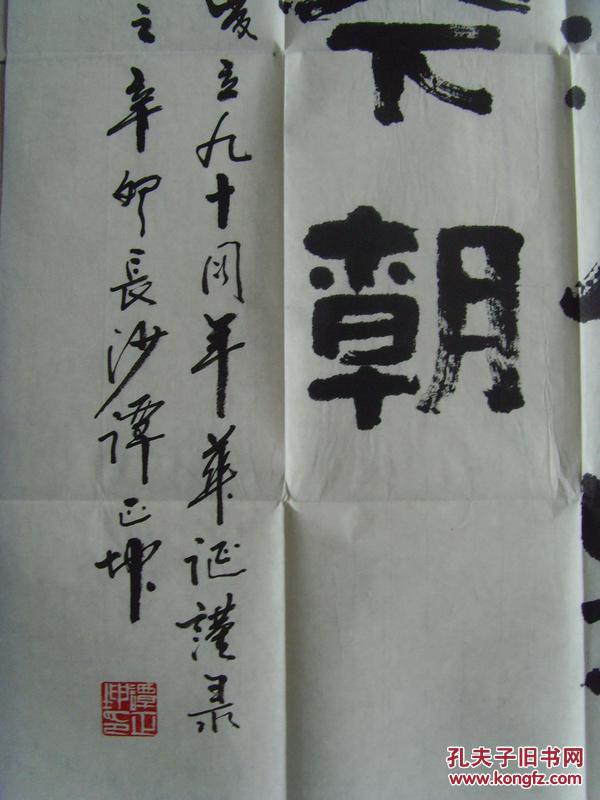 朝
立九十周年華诞謹录
之辛卯長沙譚正坤
譚正坤印
孔夫子旧书网
www.kongfz.com